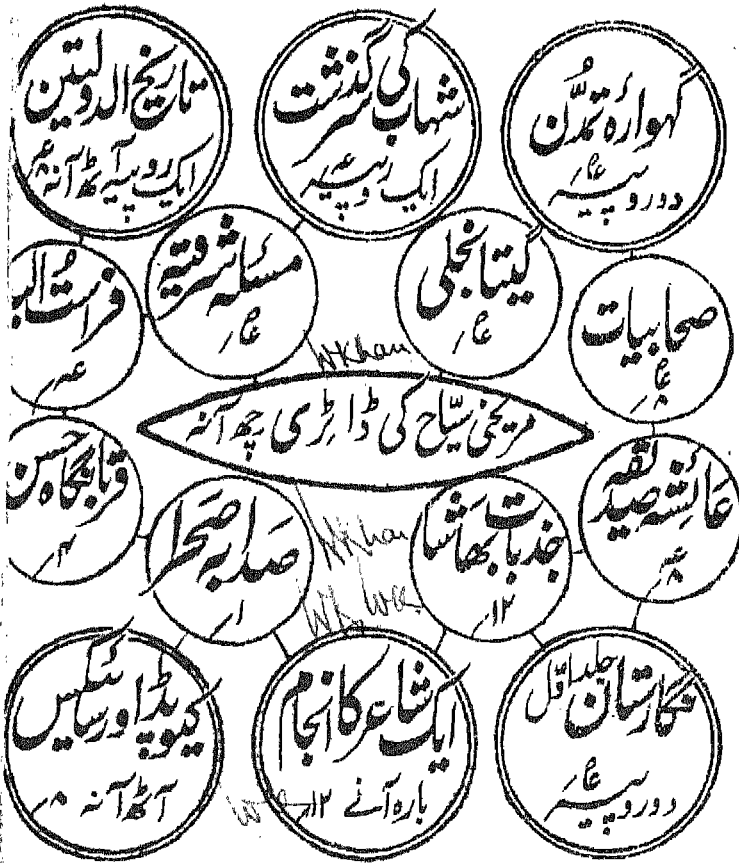 گہوارۂ تمدُّن
دو روپیہ عا؍
شہاب کی سرگذشت
ایک روپیہ عہ؍
تاریخ الدولتین
ایک روپیہ آٹھ آنہ ۸؍عہ
صحابیات
عا؍۸
گیتانجلی
عا؍
مسئلہ شرقیہ
عا؍
فراست الب
عہ؍
W Khan
مریخی سیّاح کی ڈائری چھ آنہ
عائشہ صدیقہ
عہ؍۸
جذبات بھاشا
۱۲؍
صدابہ صحرا
۱؍
قربانگاہ حسن
۴؍
W Khan
نگارستان جلد اوّل
دو روپیہ عا؍
ایک شاعر کا انجام
بارہ آنے ۱۲؍
کیوپڈ اور سائکیں
آٹھ آنہ ۸؍